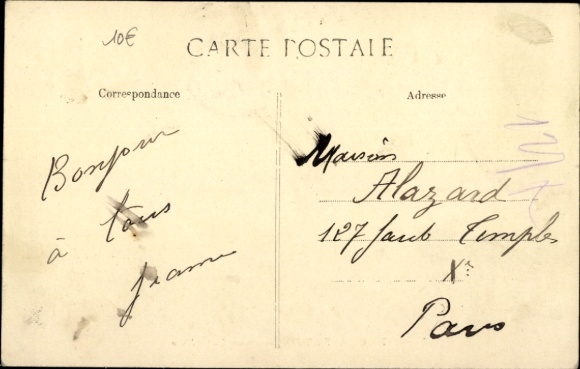 10€
CARTE POSTALE
Correspondance
Adresse
Bonjour
à tous
Jeanne
Maison
Alazard
127 faub Temple
Xe
Paris